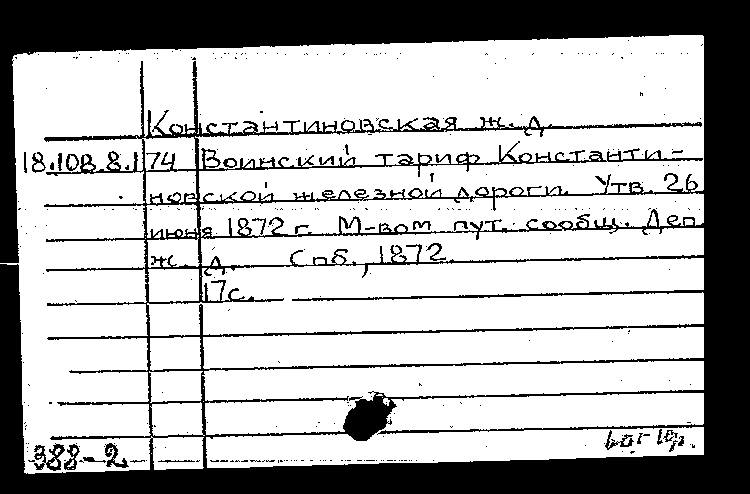 Константиновская ж. д.
18.108.8.174 Воинский тариф Константи-
новской железной дороги. Утв. 26
июня 1872 г. М-вом пут. сообщ. Деп.
ж. д. Спб., 1872.
17с.
388-2